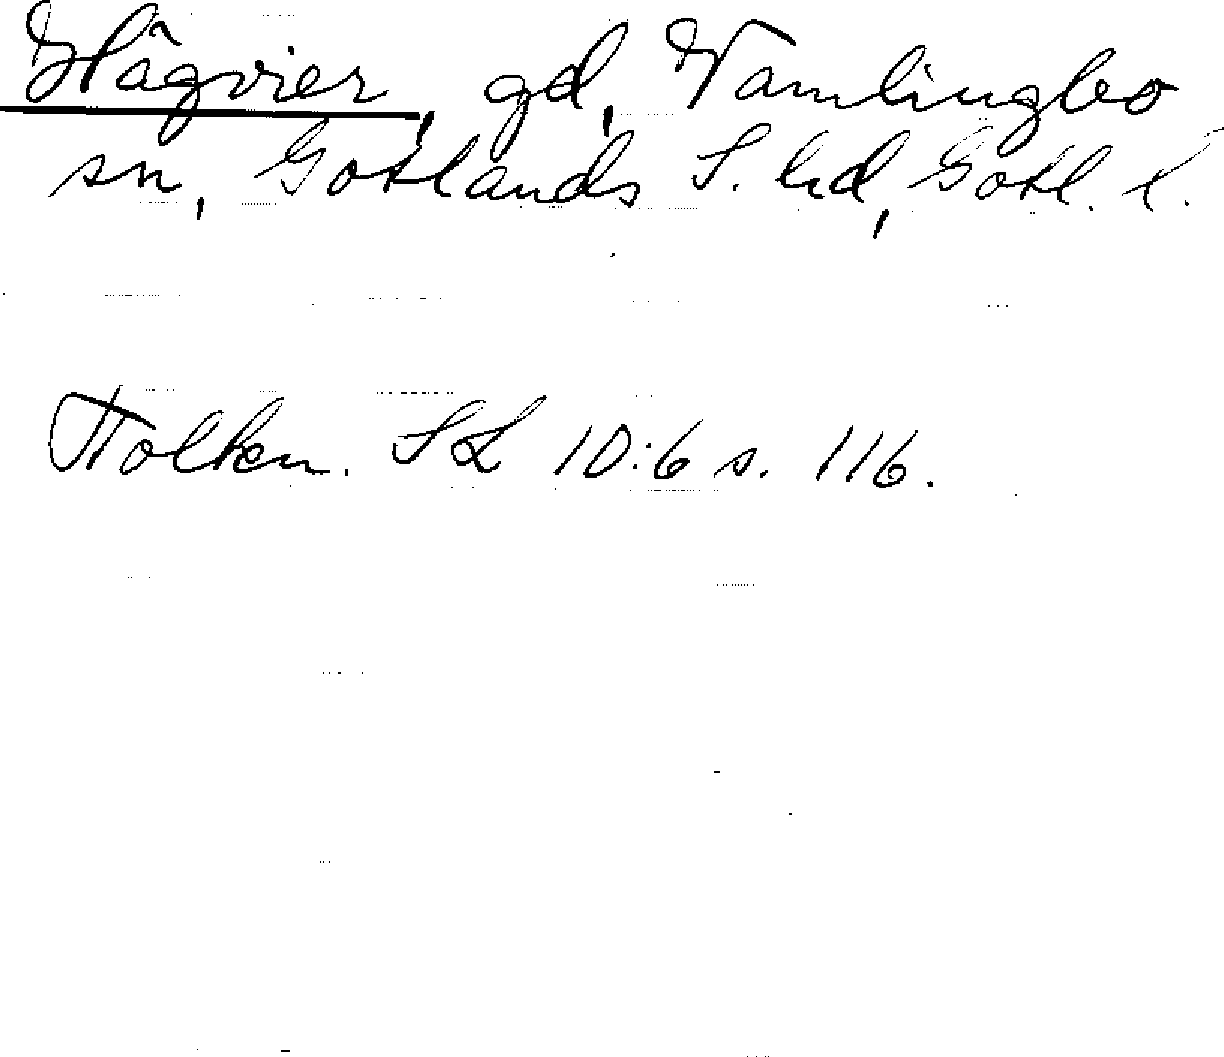 Hågvier, gd, Vamlingbo
sn, Gotlands S. hd, Gotl. l.
Tolken. SL 10:6 s. 116.